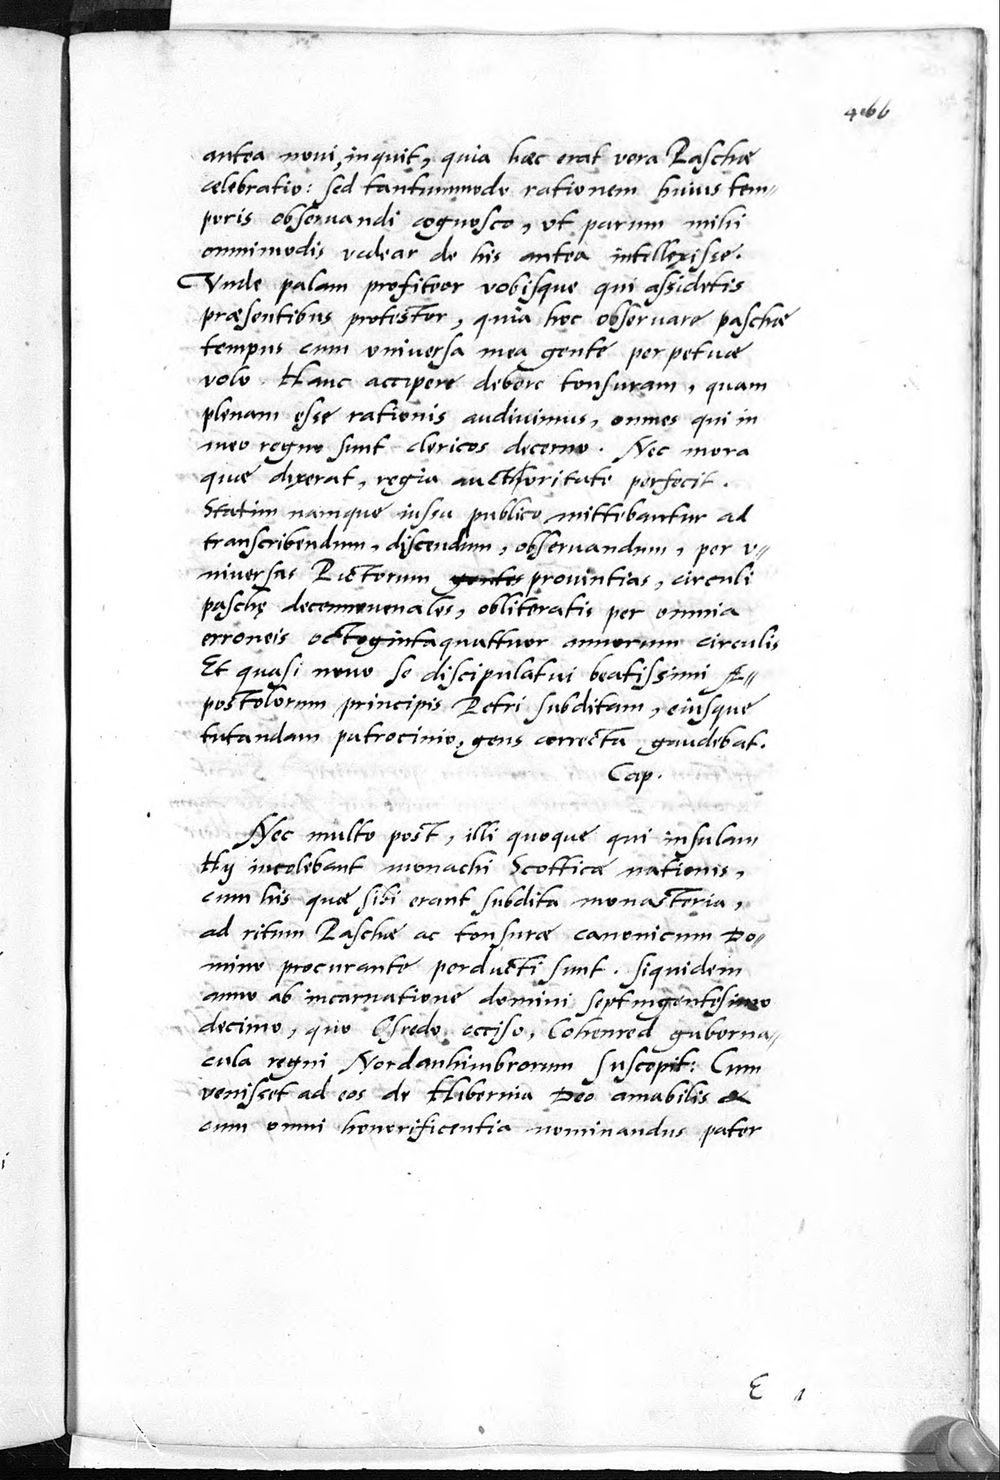 466
antea novi, inquit, quia hæc erat vera Paschæ
celebratio: sed tantummodo rationem huius tem-
poris observandi cognosco, ut parum mihi
omnimodis videar de his antea intellexisse.
Vnde palam profiteor vobisque qui assidetis
præsentibus protestor, quia hoc observare paschæ
tempus cum universa mea gente perpetuæ
volo. Hanc accipere debere tonsuram, quam
plenam esse rationis audivimus, omnes qui in
meo regno sunt clericos decerno. Nec mora
quæ dixerat, regia aucthoritate perfecit.
Statim namque iussu publico mittebantur ad
transcribendum, discendum, observandum, per v-
niversas Pictorum gentes provintias, circuli
paschę decennovenales, obliteratis per omnia
erroneis octogintaquattuor annorum circulis
Et quasi novo se discipulatui beatissimi A-
postolorum principis Petri subditam, eiusque
tutandam patrocinio, gens correcta gaudebat.
Cap.
Nec multo post, illi quoque qui insulam
Hy incolebant monachi Scotticæ nationis,
cum his quæ sibi erant subdita monasteria,
ad ritum Paschæ ac tonsuræ canonicum Do-
mino procurante perducti sunt. siquidem
anno ab incarnatione domini septingentesimo
decimo, quo Osredo occiso, Cohenred guberna-
cula regni Nordanhimbrorum suscepit: Cum
venisset ad eos de Hibernia Deo amabilis &
cum omni honorificentia nominandus pater
E 1